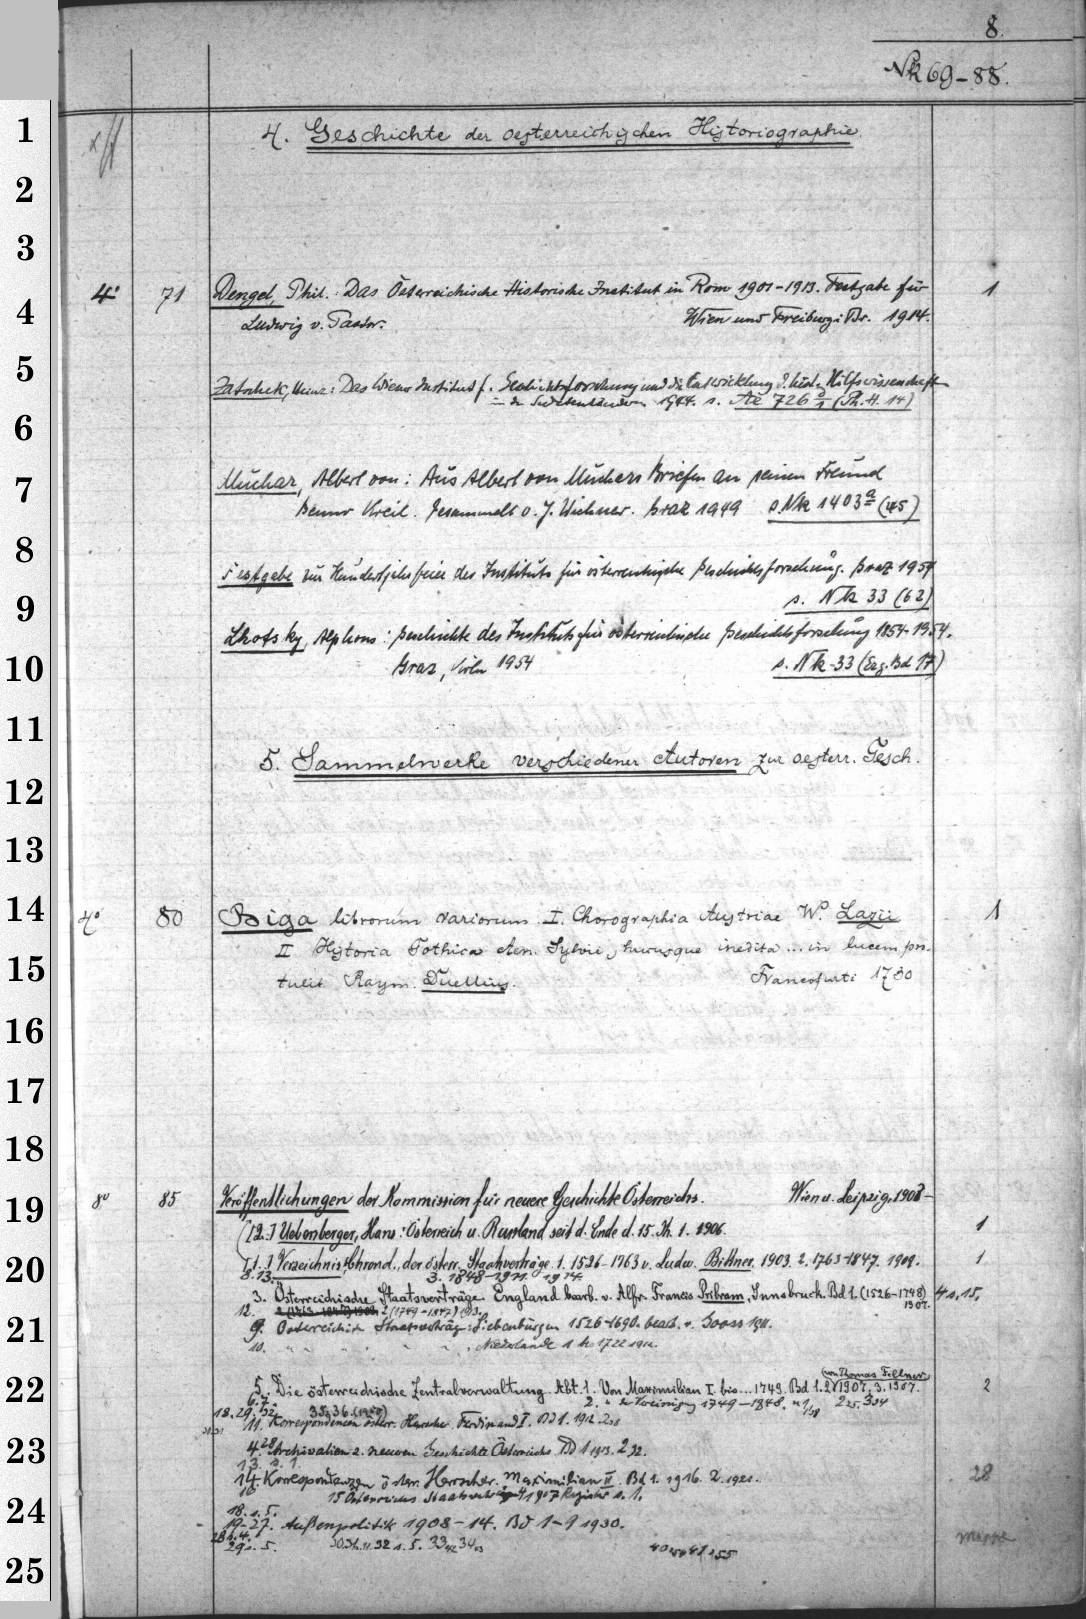 8.
Nk 69-88.
1
4. Geschichte der oesterreichischen Historiographie.
2
3
4° 71 Dengel, Phil.: Das Österreichische Historische Institut in Rom 1901-1913. Festgabe für 1
4
Ludwig v. Pastor. Wien und Freiburg i. Br. 1914.
5
Zatschek, Heinz: Das Wiener Institut f. Geschichtsforschung und die Entwicklung d. hist. Hilfswissenschaft
in den Sudetenländern 1944. s. (Ph. H. 14)
6
7
Muchar, Albert von: Aus Albert von Muchars Briefen an seinen Freund
Benno Kreil. Gesammelt v. J. Wichner. Graz 1949 s. Nk 1403 a (45)
8
Festgabe zur Hundertjahrfeier des Instituts für österreichische Geschichtsforschung. Graz 1954
9
s. Nk 33 (62)
Lhotsky, Alphons: Geschichte des Instituts für österreichische Geschichtsforschung 1854-1954.
10
Graz, Köln 1954 s. Nk 33 (Erg. Bd 17)
11
5. Sammelwerke verschiedener Autoren zur oesterr. Gesch.
12
13
14
4° 80 Biga librorum rariorum I Chorographia Austriae W. Lazii 1
II Historia Gothica Aen. Sylvii, hucusque inedita ... in lucem pro-
15
tulit Raym. Duellius. Francofurti 1730
16
17
18
19
8° 85 Veröffentlichungen der Kommission für neuere Geschichte Österreichs. Wien u. Leipzig, 1903-
([2.] Uebersberger, Hans: Österreich u. Russland seit d. Ende d. 15. Jh. 1. 1906. 1
20
[1.] Verzeichnis, Chronol., der österr. Staatsverträge. 1. 1526-1763 v. Ludw. Bittner. 1903. 2. 1763-1847. 1909. 1
8. 13. 3. 1848-1911. 1914
3. Österreichische Staatsverträge. England bearb. v. Alfr. Francis Pribram, Innsbruck. Bd 1. (1526-1748)
1907.
12. 2 (1749-1847) 1913.
21
9. Österreichische Staatsverträge: Siebenbürgen 1526-1690. bearb. v. Gooss 1911.
10. " " " " Niederlande 1 b. 1722 1912.
22
(von Thomas Fellner)
5. Die österreichische Zentralverwaltung. Abt. 1. Von Maximilian I. bis ... 1749. Bd 1. 2. 1907. 3. 1907. 2
6. 7. 2. 1749-1848.
18. 29. 32. 35. 36.
11. Korrespondenzen österr. Herrscher. Ferdinand I. Bd 1. 1912.
23
4. Archivalien z. neueren Geschichte Österreichs Bd 1 1913. 2 32.
13. s. 1. 28
14. Korrespondenzen österr. Herrscher. Maximilian II. Bd 1. 1916. 2. 1921.
15 Österreichs Staatsverträge 1907 Register s. 1.
24
18. s. 5.
19-27. Außenpolitik 1908-14. Bd 1-9 1930.
28 s. 4.
25
29 s. 5.